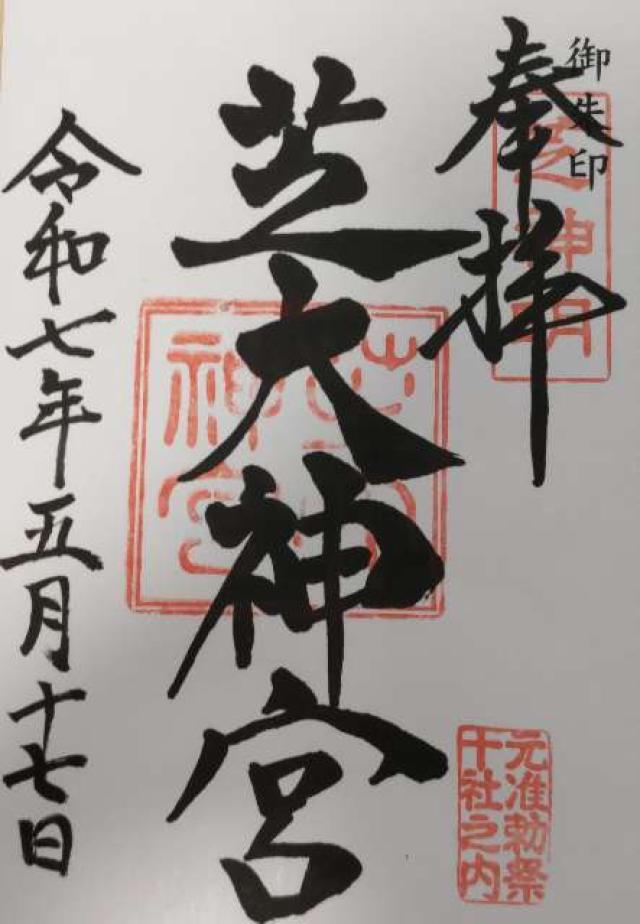 御朱印
奉拝
芝神明
芝大神宮
令和七年五月十七日
元准勅祭
十社之内